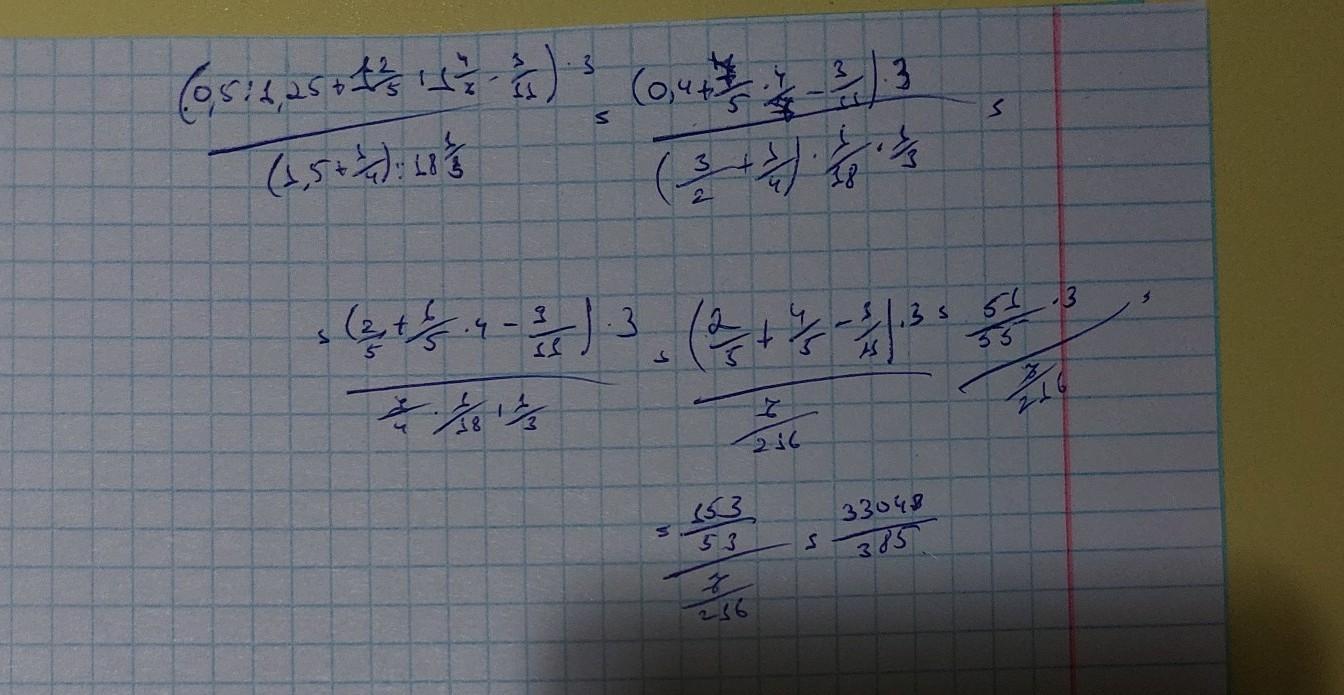 (0,5:1,25+1 2/5:1 4/7-3/11)·3 / (1,5+1/4):18 1/3 = (0,4+7/5·4/7-3/11)·3 / (3/2+1/4)·1/18·1/3 =
=(2/5+1/5·4-3/11)·3 / 7/4·1/18·1/3 = (2/5+4/5-3/11)·3 / 7/216 = 51/55·3 / 7/216 =
=153/53 / 7/216 = 33048/385